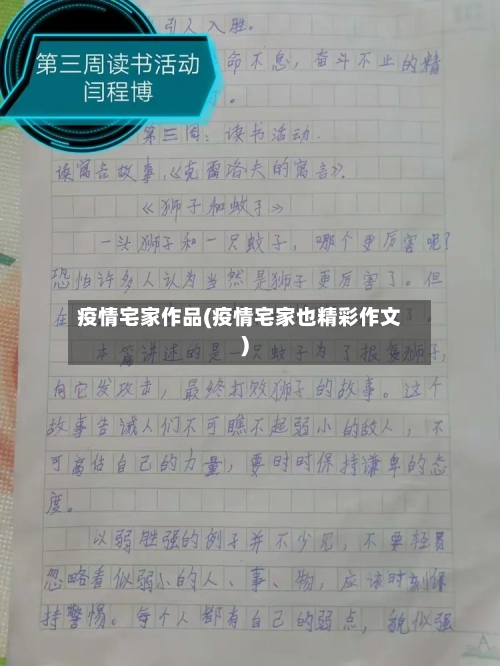 引人入胜。
第三周读书活动
闫程博
命不息，奋斗不止的精
。
第三周：读书活动.
读寓言故事，《克雷洛夫的寓言》.
《狮子和蚊子》
一头狮子和一只蚊子，哪个更厉害呢？
恐怕许多人认为当然是狮子更厉害了。但
在
疫情宅家作品(疫情宅家也精彩作文
)
本篇讲述的是一只蚊子为了报复狮子，
向它发攻击，最终打败狮子的故事。这个
故事告诫人们不可瞧不起弱小的敌人，不
可高估自己的力量，要时时保持谦卑的态
度。
以弱胜强的例子并不少见，不要轻易
忽略看似弱小的人、事、物，应该时刻保
持警惕。每个人都有自己的弱点，貌似强